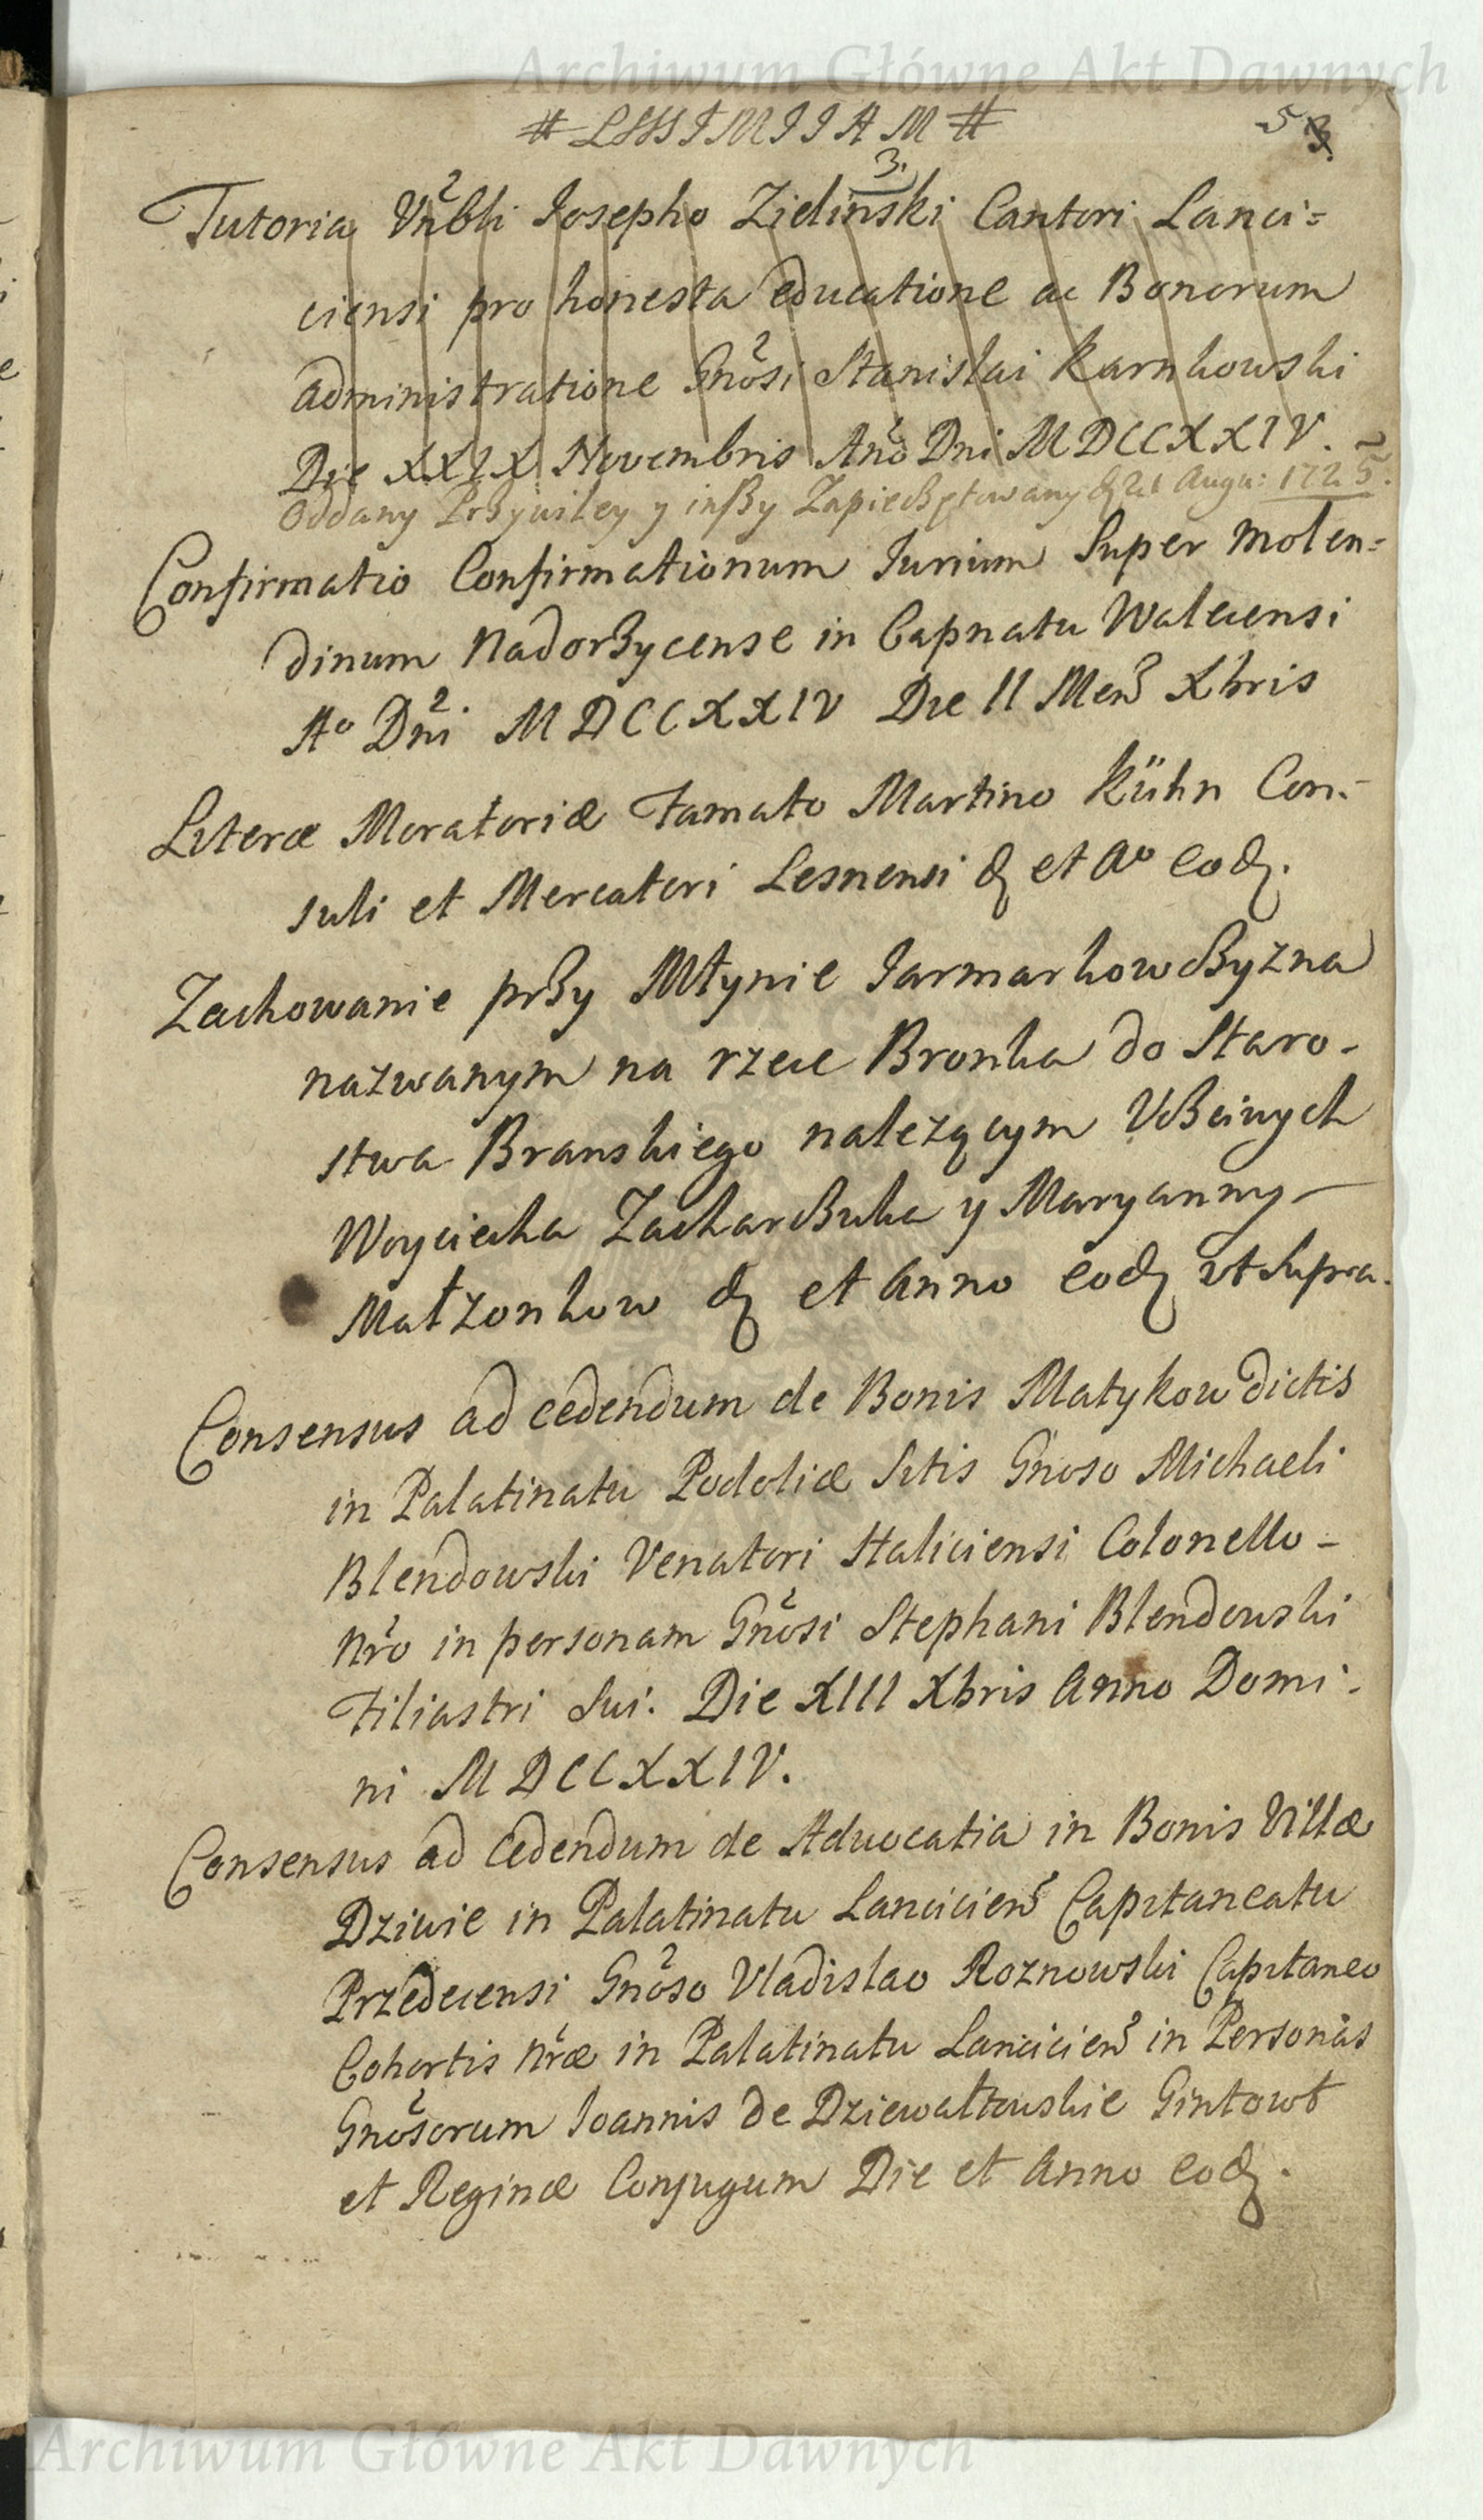 Archiwum Główne Akt Dawnych
5 3
3.
Tutoria Vnbli Iosepho Zielinski Cantori Lanci=
ciensi pro honesta educatione ac Bonorum
administratione Gnosi Stanislai Karnkowski
Die XXIX Novembris Ano Dni MDCCXXIV.
Oddany Przywiley y inszy Zapieczętowany d 21 Augu: 1725.
Confirmatio Confirmationum Iurium Super Molen=
dinum Nadorzycense in Capnatu Walecensi
Ao Dni MDCCXXIV Die II Mens Xbris
Literæ Moratoriæ Famato Martino Kühn Con-
suli et Mercatori Lesnensi d et Ao eod.
Zachowanie przy Młynie Iarmarkowszczyzna
nazwanym na rzece Bronka do Staro-
stwa Branskiego nalezącym Vczciwych
Woyciecha Zacharczuka y Maryanny
Małzonkow d et Anno eod ut Supra.
Consensus ad cedendum de Bonis Matykow dictis
in Palatinatu Podoliæ Sitis Gnoso Michaeli
Blendowski Venatori Haliciensi Colonello-
Nro in personam Gnosi Stephani Blendowski
Filiastri Sui. Die XIII Xbris Anno Domi-
ni MDCCXXIV.
Consensus ad Cedendum de Advocatia in Bonis Villæ
Dziwie in Palatinatu Lanciciens Capitaneatu
Przedecensi Gnoso Vladislao Roznowski Capitaneo
Cohortis Nræ in Palatinatu Lanciciens in Personas
Gnosorum Ioannis de Dziewałtowskie Gintowt
et Reginæ Conjugum Die et Anno eod.
Archiwum Główne Akt Dawnych